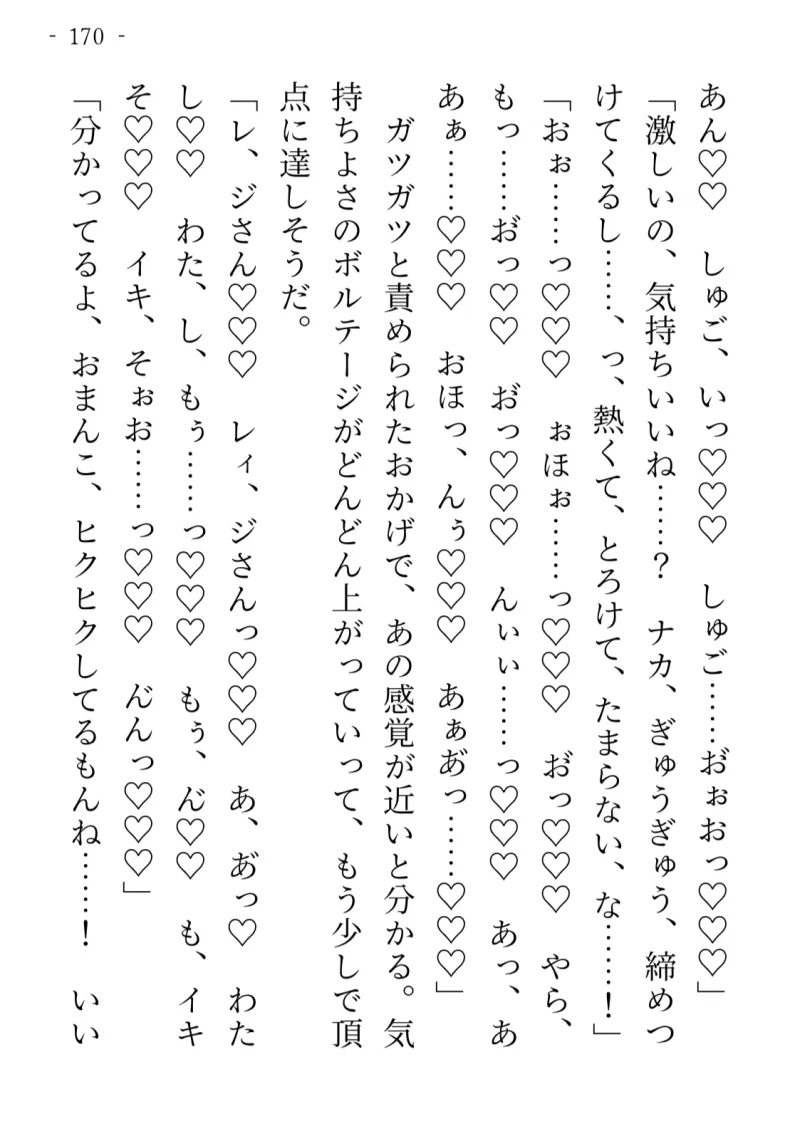 - 170 -
あん♡♡　しゅご、いっ♡♡♡　しゅご……お゙ぉおっ♡♡♡」
「激しいの、気持ちいいね……？　ナカ、ぎゅうぎゅう、締めつ
けてくるし……、っ、熱くて、とろけて、たまらない、な……！」
「おぉ……っ♡♡♡　ぉほぉ……っ♡♡♡　お゙っ♡♡♡　やら、
もっ……お゙っ♡♡　お゙っ♡♡♡　んぃぃ……っ♡♡♡　あっ、あ
あぁ……♡♡♡　おほっ、んぅ♡♡♡　あぁあ゙っ……♡♡♡」
　ガツガツと責められたおかげで、あの感覚が近いと分かる。気
持ちよさのボルテージがどんどん上がっていって、もう少しで頂
点に達しそうだ。
「レ、ジさん♡♡♡　レィ、ジさんっ♡♡♡　あ、あ゙っ♡　わた
し♡♡　わた、し、もぅ……っ♡♡♡　もぅ、ん゙♡♡　も、イキ
そ♡♡♡　イキ、そぉお……っ♡♡♡　ん゙んっ♡♡♡」
「分かってるよ、おまんこ、ヒクヒクしてるもんね……！　いい